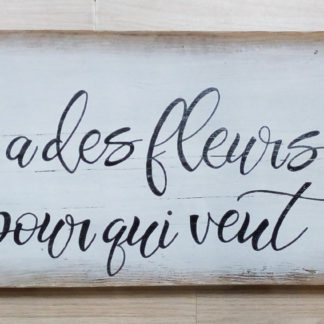 a des fleurs
pour qui veut